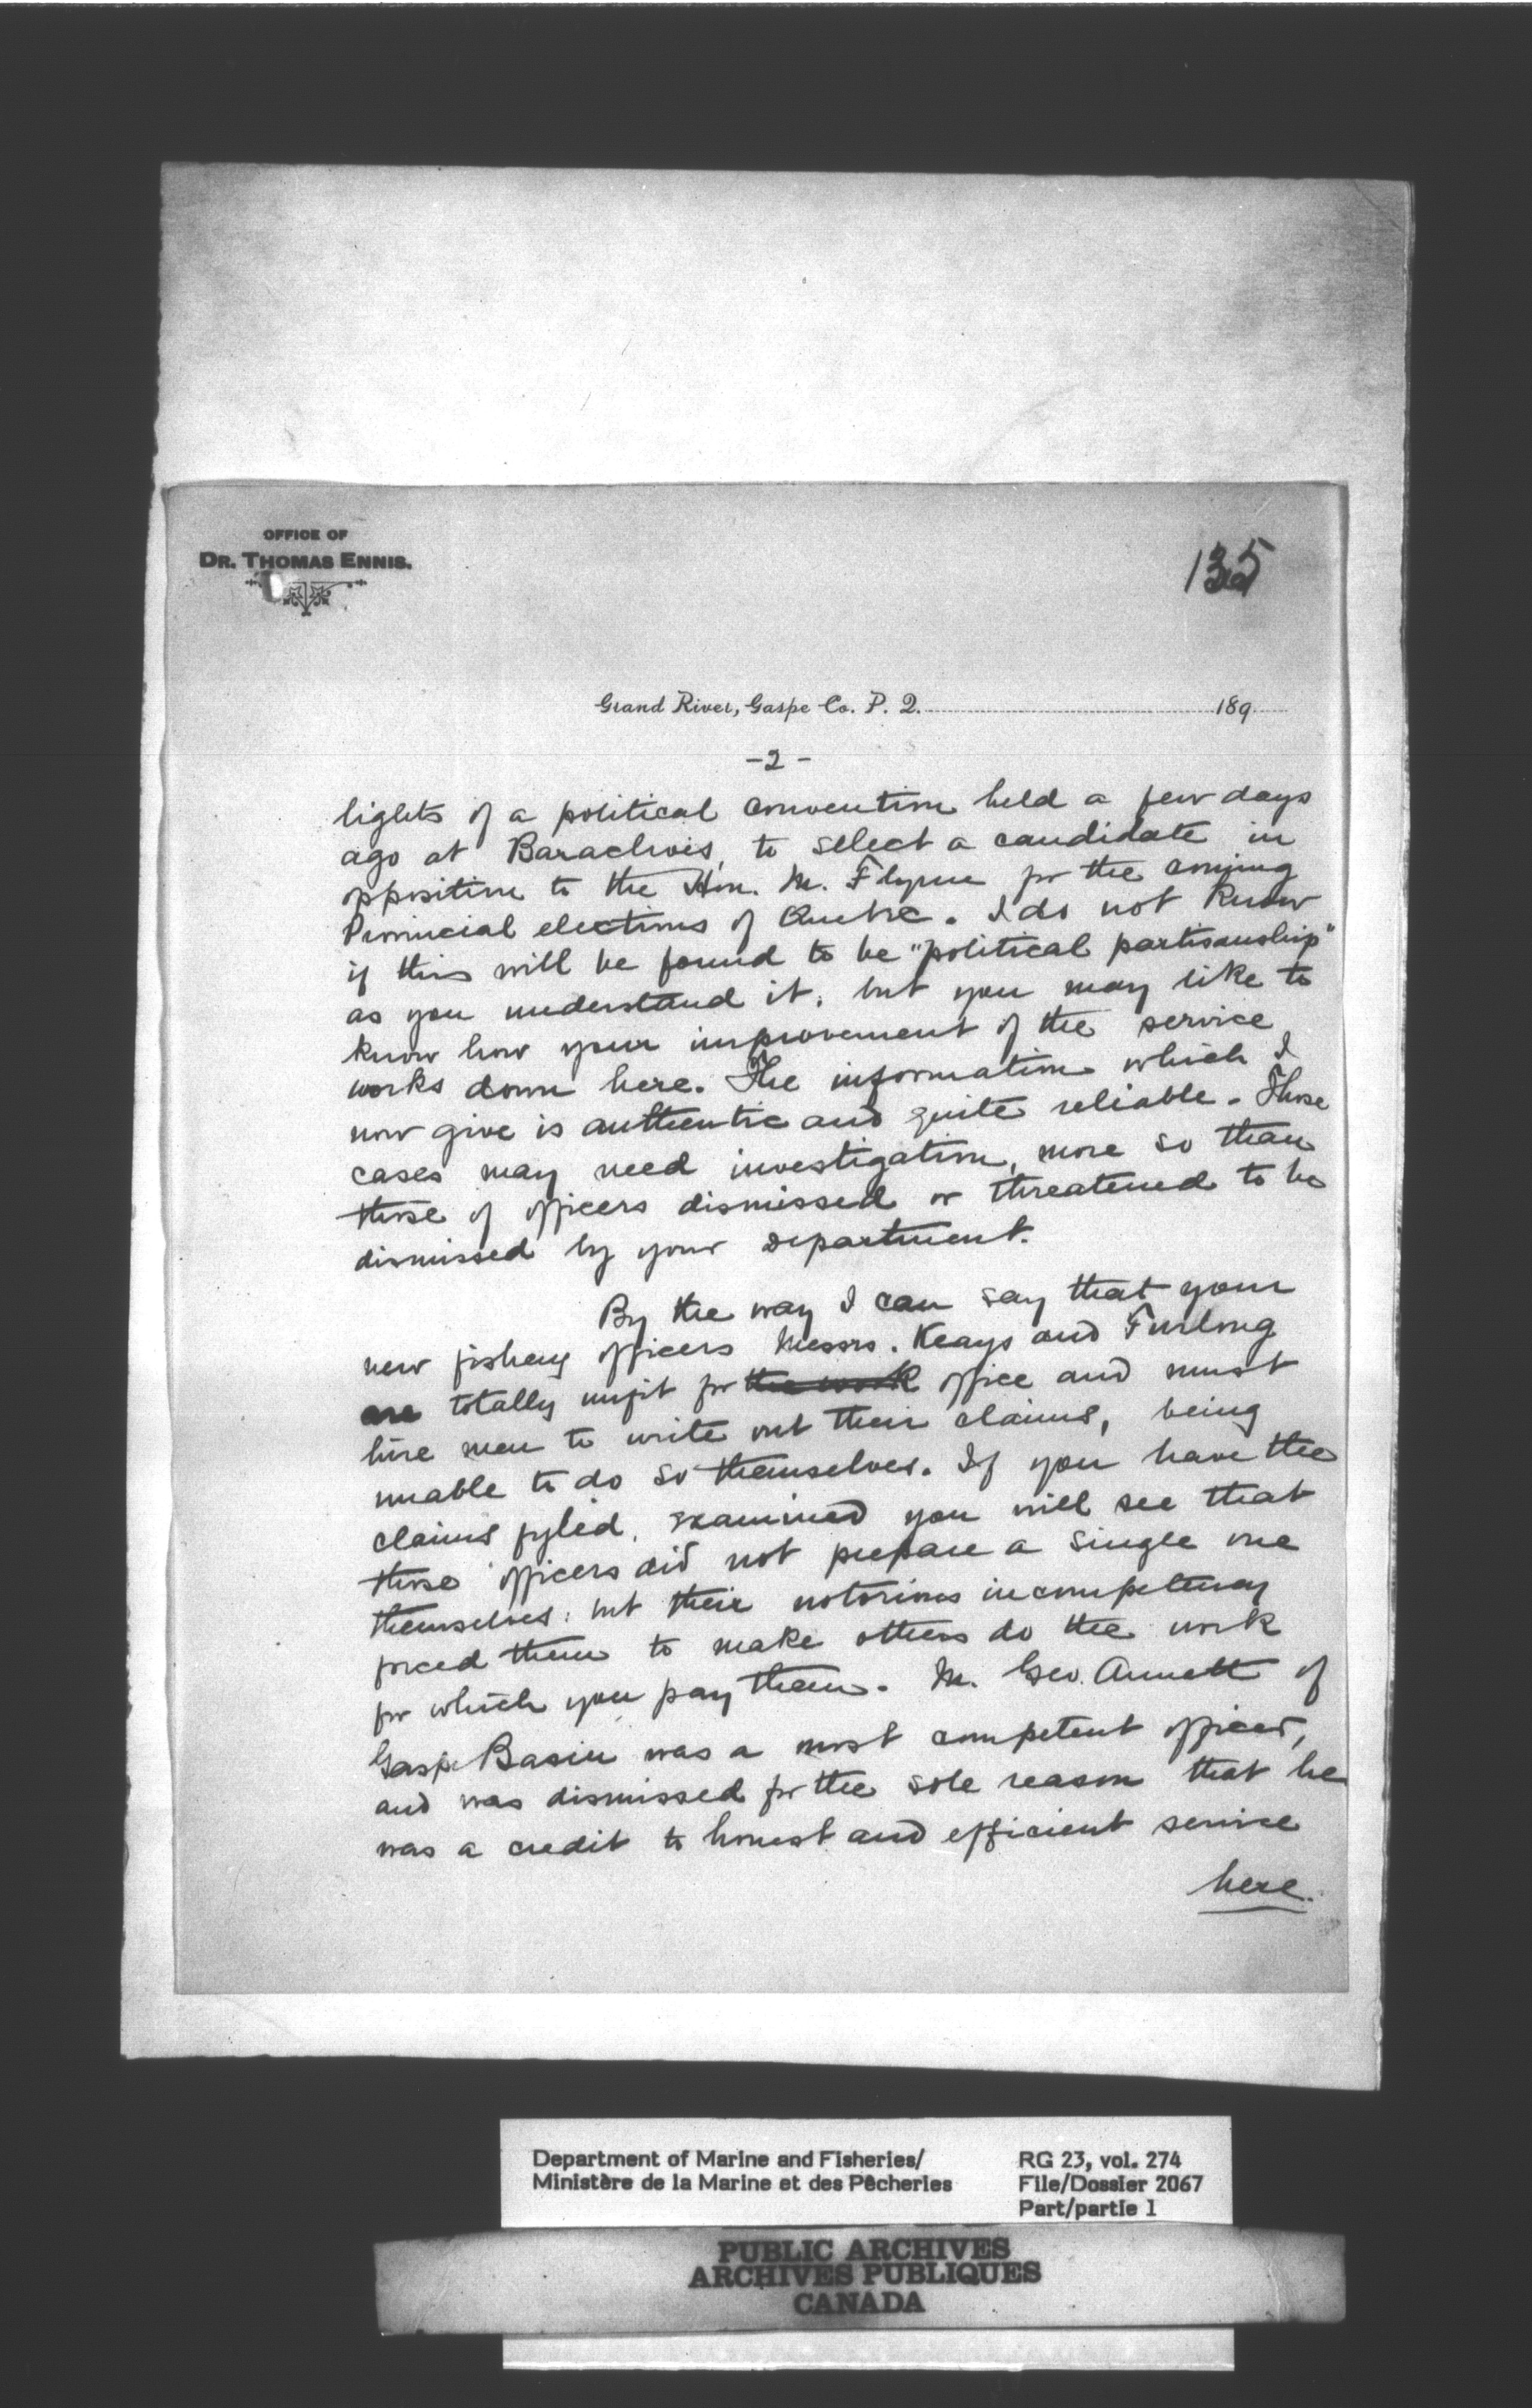 OFFICE OF
DR. THOMAS ENNIS.
135
Grand River, Gaspe Co. P. Q. 189
- 2 -
lights of a political convention held a few days
ago at Barachois, to select a candidate in
opposition to the Hon. M. Flynn for the coming
Provincial elections of Quebec. I do not know
if this will be found to be "political partisanship"
as you understand it, but you may like to
know how your improvement of the service
works down here. The information which I
now give is authentic and quite reliable. Those
cases may need investigation, more so than
those of officers dismissed or threatened to be
dismissed by your department.
By the way I can say that your
new fishery officers Messrs. Keays and Furlong
are totally unfit for the work office and must
hire men to write out their claims, being
unable to do so themselves. If you have the
claims fyled, examined you will see that
those officers did not prepare a single one
themselves; but their notorious incompetency
forced them to make others do the work
for which you pay them. M. Geo. Annett of
Gaspe Basin was a most competent officer,
and was dismissed for the sole reason that he
was a credit to honest and efficient service
here.
Department of Marine and Fisheries/
Ministère de la Marine et des Pêcheries
RG 23, vol. 274
File/Dossier 2067
Part/partie 1
PUBLIC ARCHIVES
ARCHIVES PUBLIQUES
CANADA